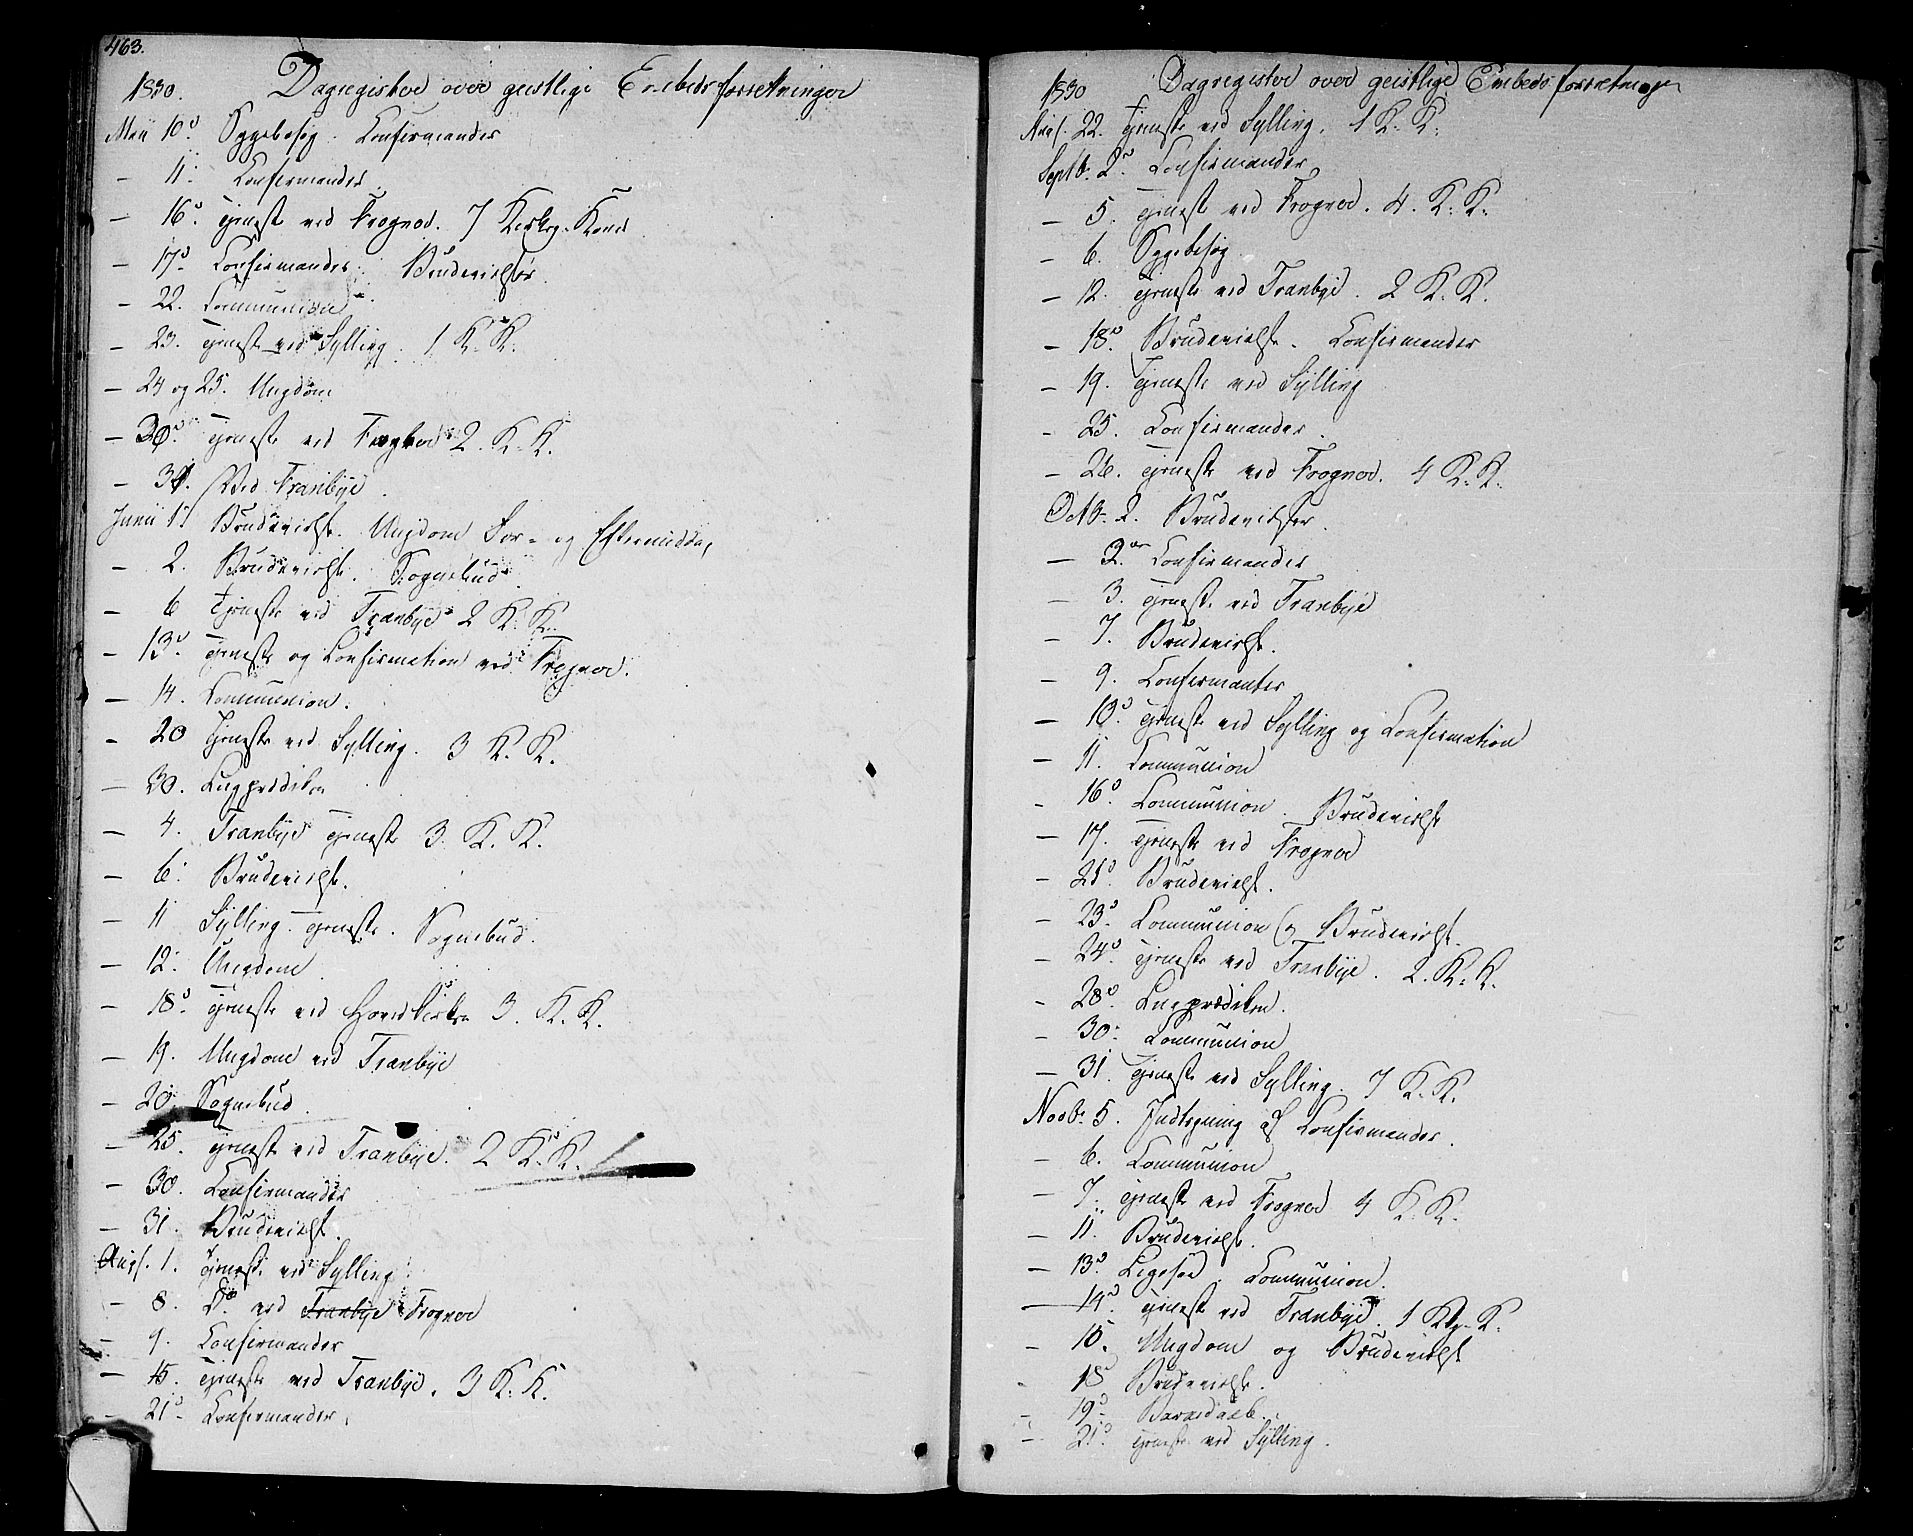 463.
1830. Dagregister over geistlige Embedsforretninger
Maii 10d Sygebesøg. Confirmander
— 11. Confirmander
— 16d. Tjeneste ved Frogner. 7 Kirkeg. Koner
— 17d. Confirmander. Brudevielser.
— 22. Communion
— 23. Tjeneste ved Sylling. 1 K. K.
— 24 og 25. Ungdom
— 30d. Tjeneste ved Frogner 2. K. K.
— 31. Ved Tranbye.
Junii 1. Brudevielse. Ungdom For- og Eftermiddag
— 2. Brudevielse. Sognebud
— 6 Tjeneste ved Tranbye 2 K. K.
— 13d. Tjeneste og Confirmation ved Frogner.
— 14. Communion.
— 20 Tjeneste ved Sylling. 3 K. K.
— 30. Liigprædiken
— 4. Tranbye Tjeneste 3. K. K.
— 6. Brudevielse.
— 11 Sylling Tjeneste. Sognebud.
— 12. Ungdom
— 18d. Tjeneste ved Hovedkirken 3. K. K.
— 19. Ungdom ved Tranbye
— 20. Sognebud
— 25. Tjeneste ved Tranbye. 2 K. K.
— 30. Confirmander
— 31. Brudevielse.
Augs. 1. Tjeneste ved Sylling
— 8. Do ved Tranbye Frogner
— 9. Confirmander
— 15. Tjeneste ved Tranbye. 3 K. K.
— 21d. Confirmander.
1830 Dagregister over geistlige Embedsforretninger
Augs. 22. Tjeneste ved Sylling. 1 K. K.
Septb. 2d. Confirmander
— 5. Tjeneste ved Frogner. 4. K. K.
— 6. Sygebesøg
— 12. Tjeneste ved Tranbye. 2 K. K.
— 18d. Brudevielse. Confirmander
— 19. Tjeneste ved Sylling
— 25. Confirmander.
— 26. Tjeneste ved Frogner. 4 K. K.
Octb. 2. Brudevielser.
— 2. Confirmander
— 3. Tjeneste ved Tranbye
— 7. Brudevielse.
— 9. Confirmanter
— 10d. Tjeneste ved Sylling og Confirmation
— 11. Communion
— 16d. Communion. Brudevielse
— 17. Tjeneste ved Frogner
— 21d. Brudevielse.
— 23d. Communion og Brudevielse.
— 24d. Tjeneste ved Tranbye. 2. K. K.
— 28d. Liigprædiken.
— 30. Communion
— 31. Tjeneste ved Sylling. 7 K. K.
Novb. 5. Indtegning af Confirmander.
— 6. Communion
— 7. Tjeneste ved Frogner 4 K. K.
— 11. Brudevielse.
— 13d. Communion.
— 14d. Tjeneste ved Tranbye. 1 Kg. K.
— 15. Ungdom og Brudevielse
— 18d Brudevielse.
— 19d. Barnedaab.
— 21d. Tjeneste ved Sylling.